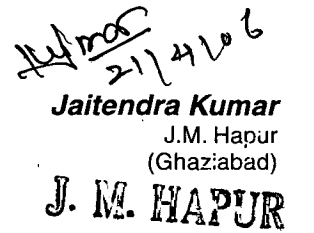 Kumar
21/4/06
Jaitendra Kumar
J.M. Hapur
(Ghaziabad)
J. M. HAPUR